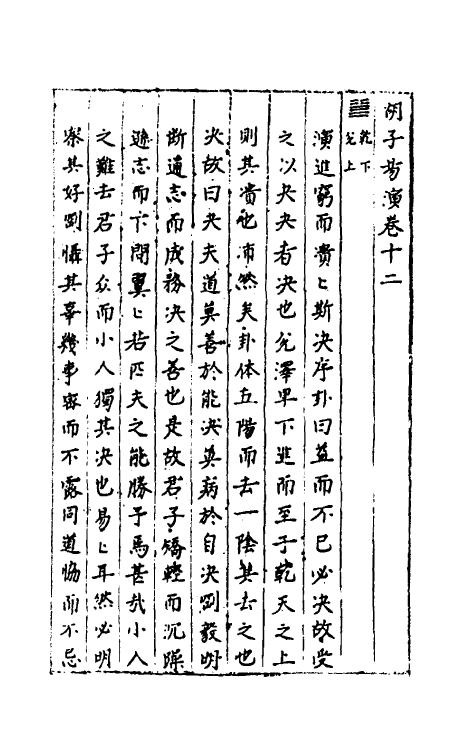 胡子易演卷十二
乾下
兌上
演進窮而潰〻斯決序卦曰益而不已必決故受
之以夬夬者決也兌澤卑下進而至于乾天之上
則其潰也沛然矣卦体五陽而去一陰其去之也
決故曰夬夫道莫善於能決莫病於自決剛毅明
断通志而成務決之善也是故君子矯輕而沉躁
遜志而下問翼〻若匹夫之能勝予焉甚哉小人
之難去君子众而小人獨其決也易〻耳然必明
察其好剛懾其辜幾事密而不露同道恊而不忌